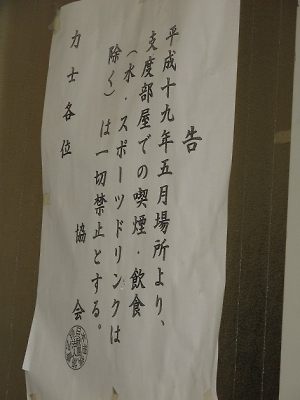 告
平成十九年五月場所より、
支度部屋での喫煙・飲食
(水・スポーツドリンクは
除く) は一切禁止とする。
力士各位 協会